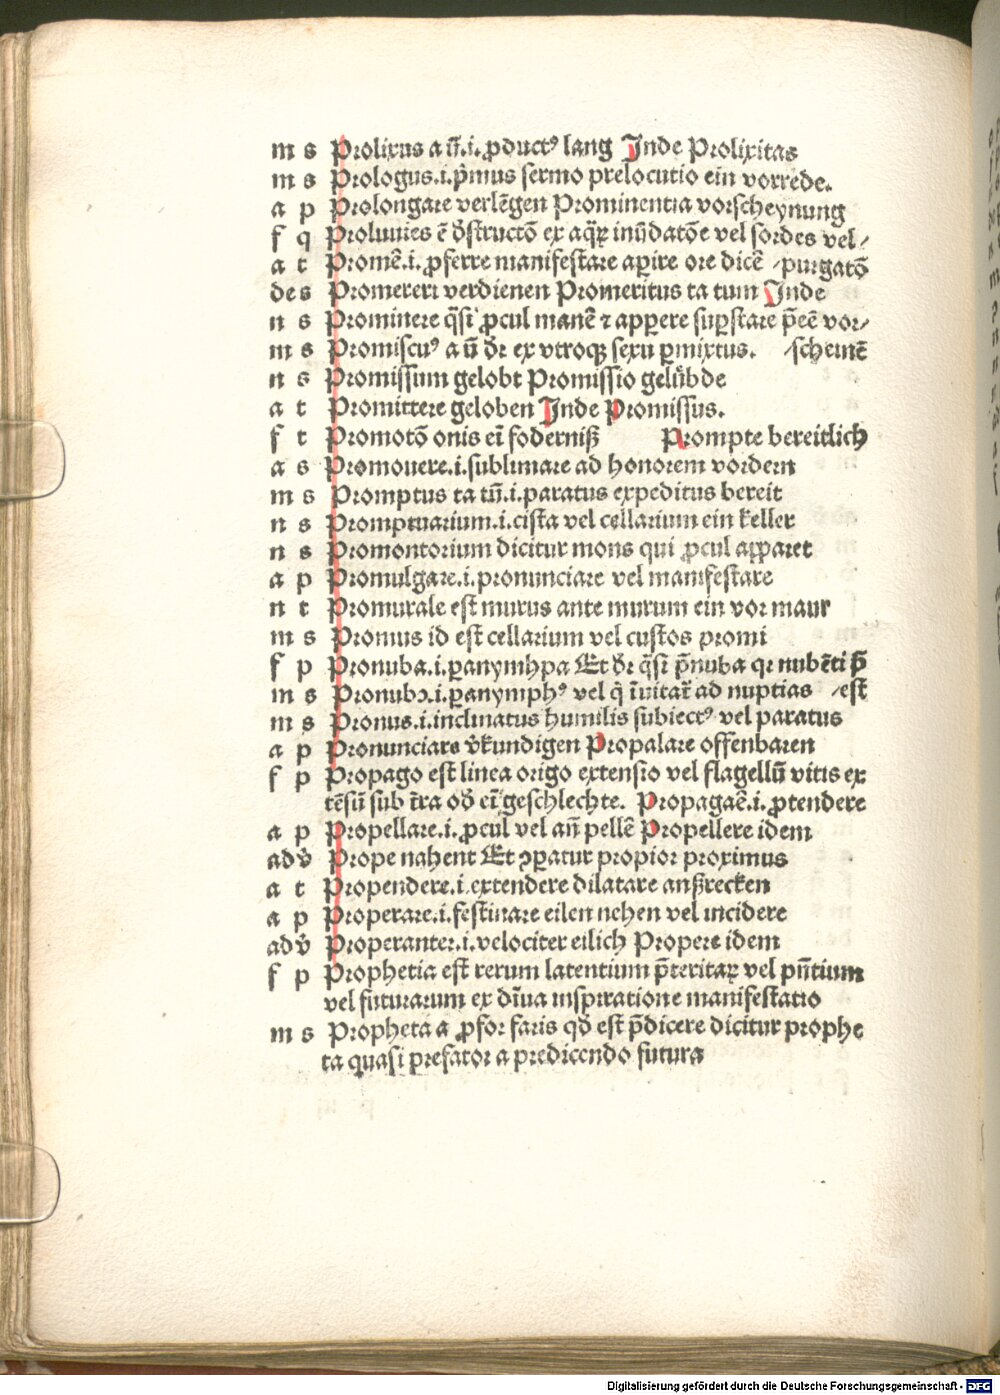 m s Prolixus a ū.i. ꝓductꝰ lang Inde Prolixitas
m s Prologus.i.p̄mus sermo prelocutio ein vorrede.
a p Prolongare verlēgen Prominentia vorscheynung
f q Proluuies ē ꝺ̓structō ex aq̄ꝝ inūdatōe vel sordes vel⸗
a t Promē.i. ꝓferre manifestare aperire ore dicē ⸗purgatō
des Promereri verdienen Promeritus ta tum Inde
n s Prominere q̄si ꝓcul manē ⁊ apꝑere suꝑstare p̄eē vor⸗
m s Promiscuꝰ a ū dr̄ ex vtroqꝫ sexu ꝑmixtus. ⸗scheinē
n s Promissum gelobt Promissio gelübde
a t Promittere geloben Inde Promissus.
f t Promotō onis eī foderniß Prompte bereitlich
a s Promouere.i.sublimare ad honorem vordern
m s Promptus ta tū.i.paratus expeditus bereit
n s Promptuarium.i.cista vel cellarium ein keller
n s Promontorium dicitur mons qui ꝓcul apꝑaret
a p Promulgare.i.pronunciare vel manifestare
n t Promurale est murus ante murum ein vor maur
m s Promus id est cellarium vel custos promi
f p Pronuba.i.ꝑanymhpa Et dr̄ q̄si p̄nuba qr nubēti p̄
m s Pronubꝯ.i.ꝑanymphꝰ vel q̄ īuitat̄ ad nuptias ⸗est
m s Pronus.i.inclinatus humilis subiectꝰ vel paratus
a p Pronunciare v̓kundigen Propalare offenbaren
f p Propago est linea origo extensio vel flagellū vitis ex
tēsū sub t̄ra oꝺ̓ eī geschlechte. Propagaē.i. ꝓtendere
a p Propellare.i. ꝓcul vel an̄ pellē Propellere idem
adv̓ Prope nahent Et ꝯꝑatur propior proximus
a t Propendere.i.extendere dilatare anßrecken
a p Properare.i.festinare eilen nehen vel incidere
adv̓ Properanter.i.velociter eilich Propere idem
f p Prophetia est rerum latentium p̄teritaꝝ vel pn̄tium
vel futurarum ex dīua inspiratione manifestatio
m s Propheta a ꝓfor faris qđ est p̄dicere dicitur prophe
ta quasi prefator a predicendo futura
Digitalisierung gefördert durch die Deutsche Forschungsgemeinschaft - DFG